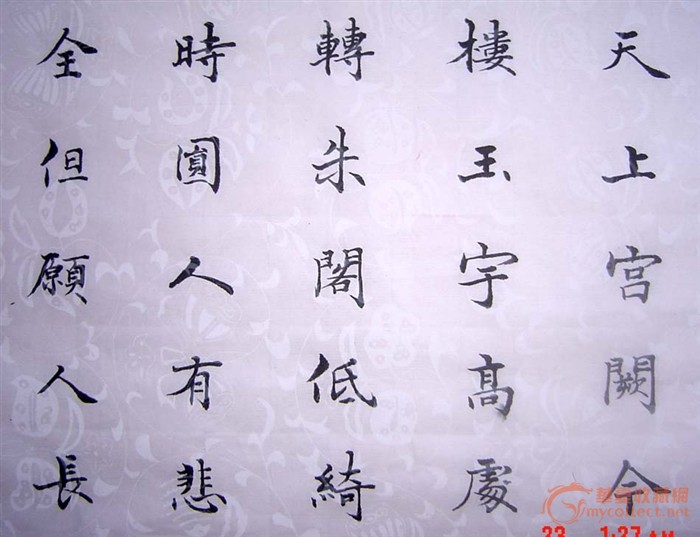 天上宮闕今
樓玉宇高處
轉朱閣低綺
時圓人有悲
全但願人長
華夏收藏網
mycollect.net